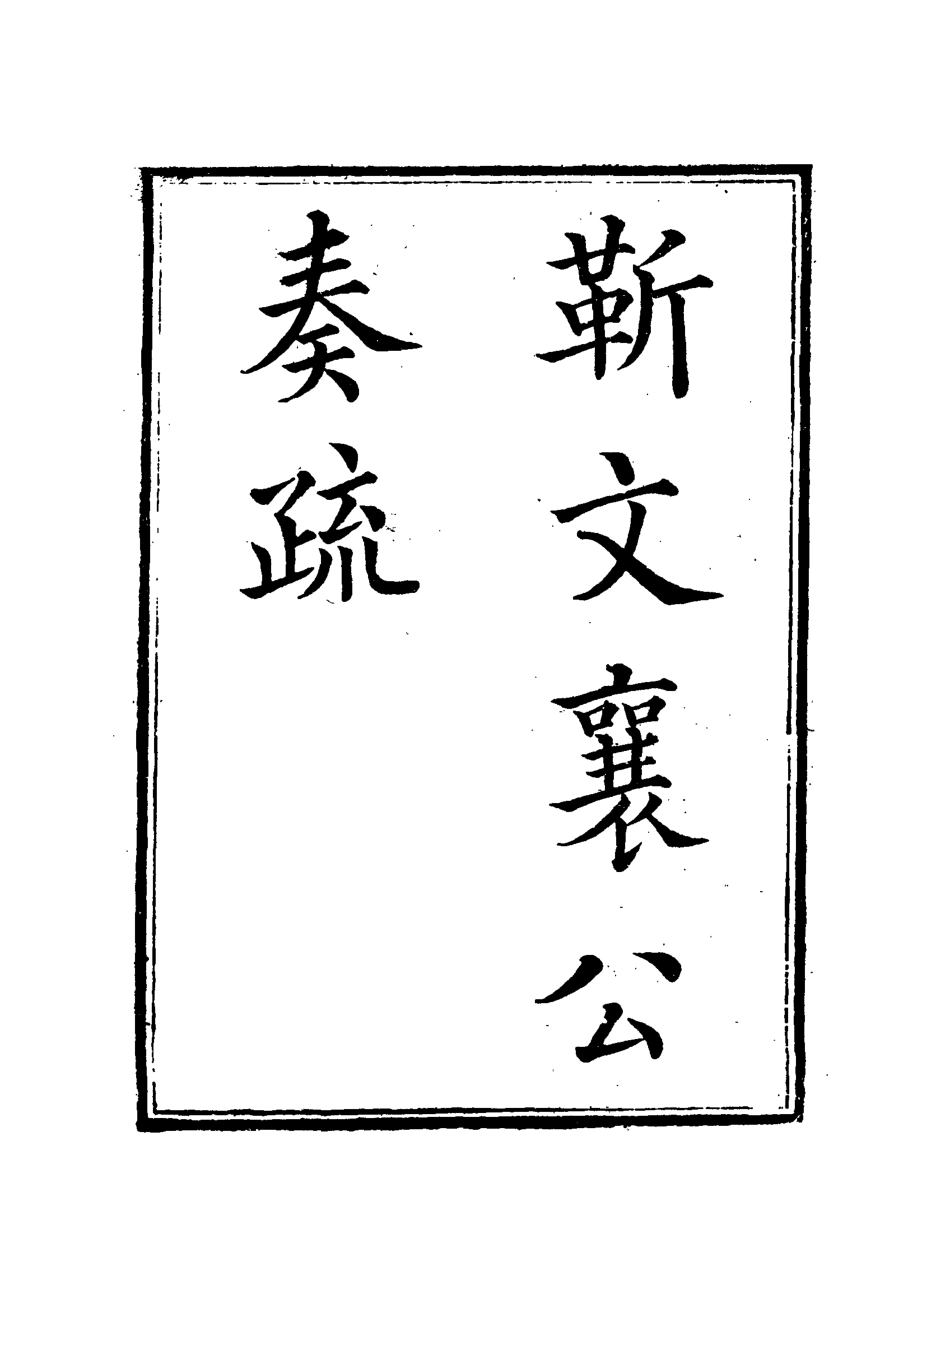 靳文襄公
奏疏